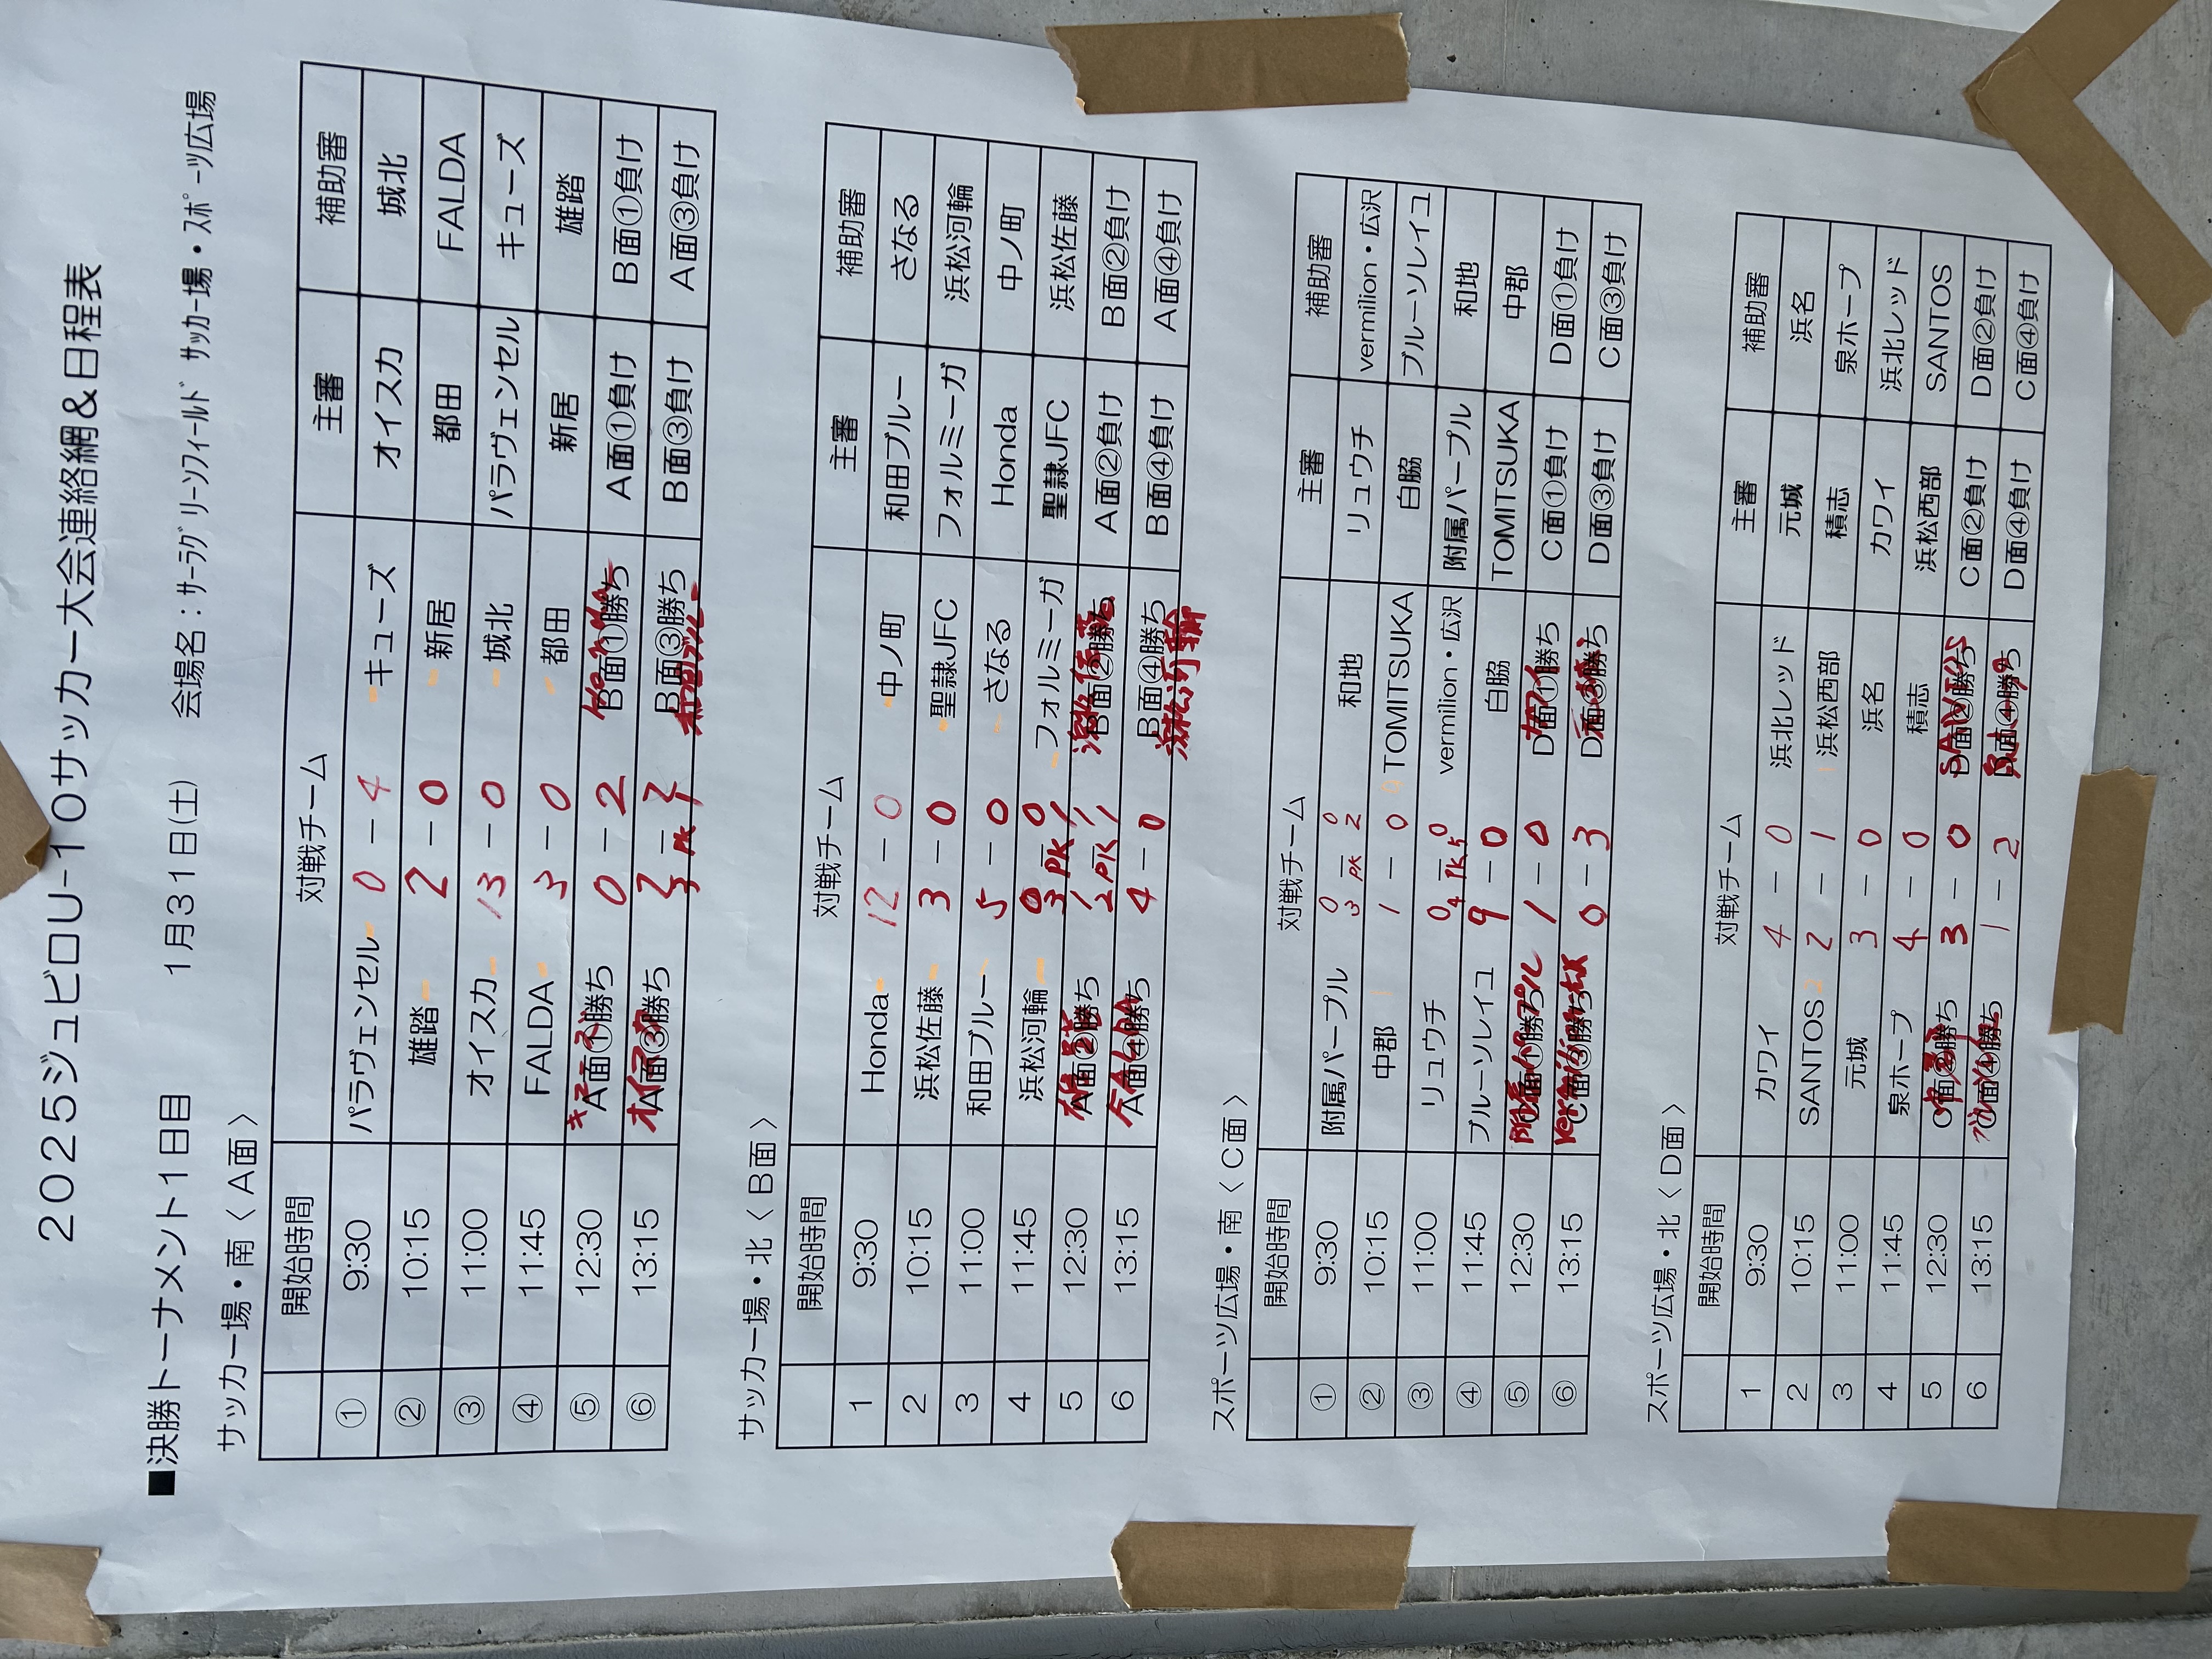 2025ジュビロU-10サッカー大会連絡網＆日程表
■決勝トーナメント1日目 1月31日(土) 会場名：サーラグリーンフィールド サッカー場・スポーツ広場
サッカー場・南〈A面〉
開始時間 対戦チーム 主審 補助審
① 9:30 パラヴェンセル 0 - 4 キューズ オイスカ 城北
② 10:15 雄踏 2 - 0 新居 都田 FALDA
③ 11:00 オイスカ 13 - 0 城北 パラヴェンセル キューズ
④ 11:45 FALDA 3 - 0 都田 新居 雄踏
⑤ 12:30 A面①勝ち キューズ 0 - 2 B面①勝ち Honda A面①負け B面①負け
⑥ 13:15 A面③勝ち オイスカ 2 - 2 PK B面③勝ち 和田ブルー B面③負け A面③負け
サッカー場・北〈B面〉
開始時間 対戦チーム 主審 補助審
1 9:30 Honda 12 - 0 中ノ町 和田ブルー さなる
2 10:15 浜松佐藤 3 - 0 聖隷JFC フォルミーガ 浜松河輪
3 11:00 和田ブルー 5 - 0 さなる Honda 中ノ町
4 11:45 浜松河輪 0 - 0 3 PK 1 フォルミーガ 聖隷JFC 浜松佐藤
5 12:30 A面②勝ち 雄踏 PK B面②勝ち 浜松佐藤 A面②負け B面②負け
6 13:15 A面④勝ち 4 - 0 B面④勝ち 浜松河輪 B面④負け A面④負け
スポーツ広場・南〈C面〉
開始時間 対戦チーム 主審 補助審
① 9:30 附属パープル 0 - 0 3 PK 2 和地 リュウチ vermilion・広沢
② 10:15 中郡 1 - 0 TOMITSUKA 白脇 ブルーソレイユ
③ 11:00 リュウチ 0 - 0 4 PK 5 vermilion・広沢 附属パープル 和地
④ 11:45 ブルーソレイユ 9 - 0 白脇 TOMITSUKA 中郡
⑤ 12:30 C面①勝ち 附属パープル 1 - 0 D面①勝ち カワイ C面①負け D面①負け
⑥ 13:15 C面③勝ち vermilion広沢 0 - 3 D面③勝ち 元城 D面③負け C面③負け
スポーツ広場・北〈D面〉
開始時間 対戦チーム 主審 補助審
1 9:30 カワイ 4 - 0 浜北レッド 元城 浜名
2 10:15 SANTOS 2 - 1 浜松西部 積志 泉ホープ
3 11:00 元城 3 - 0 浜名 カワイ 浜北レッド
4 11:45 泉ホープ 4 - 0 積志 浜松西部 SANTOS
5 12:30 C面②勝ち 中郡 3 - 0 D面②勝ち SANTOS C面②負け D面②負け
6 13:15 C面④勝ち 1 - 2 D面④勝ち D面④負け C面④負け